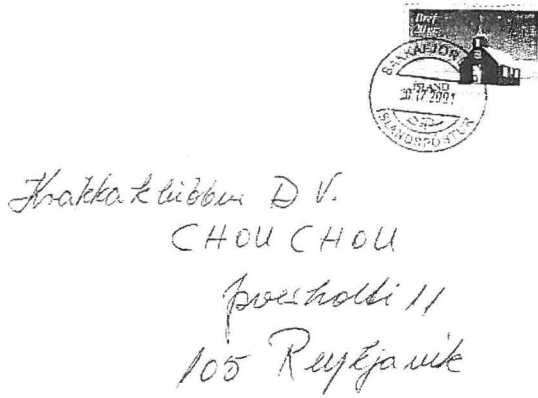 Bréf
20g
BAKKAFJÖRÐ
ÍSLAND
2001
ÍSLANDSPÓSTUR
Krakkaklúbbur D V.
CHOU CHOU
Þverholti 11
105 Reykjavík